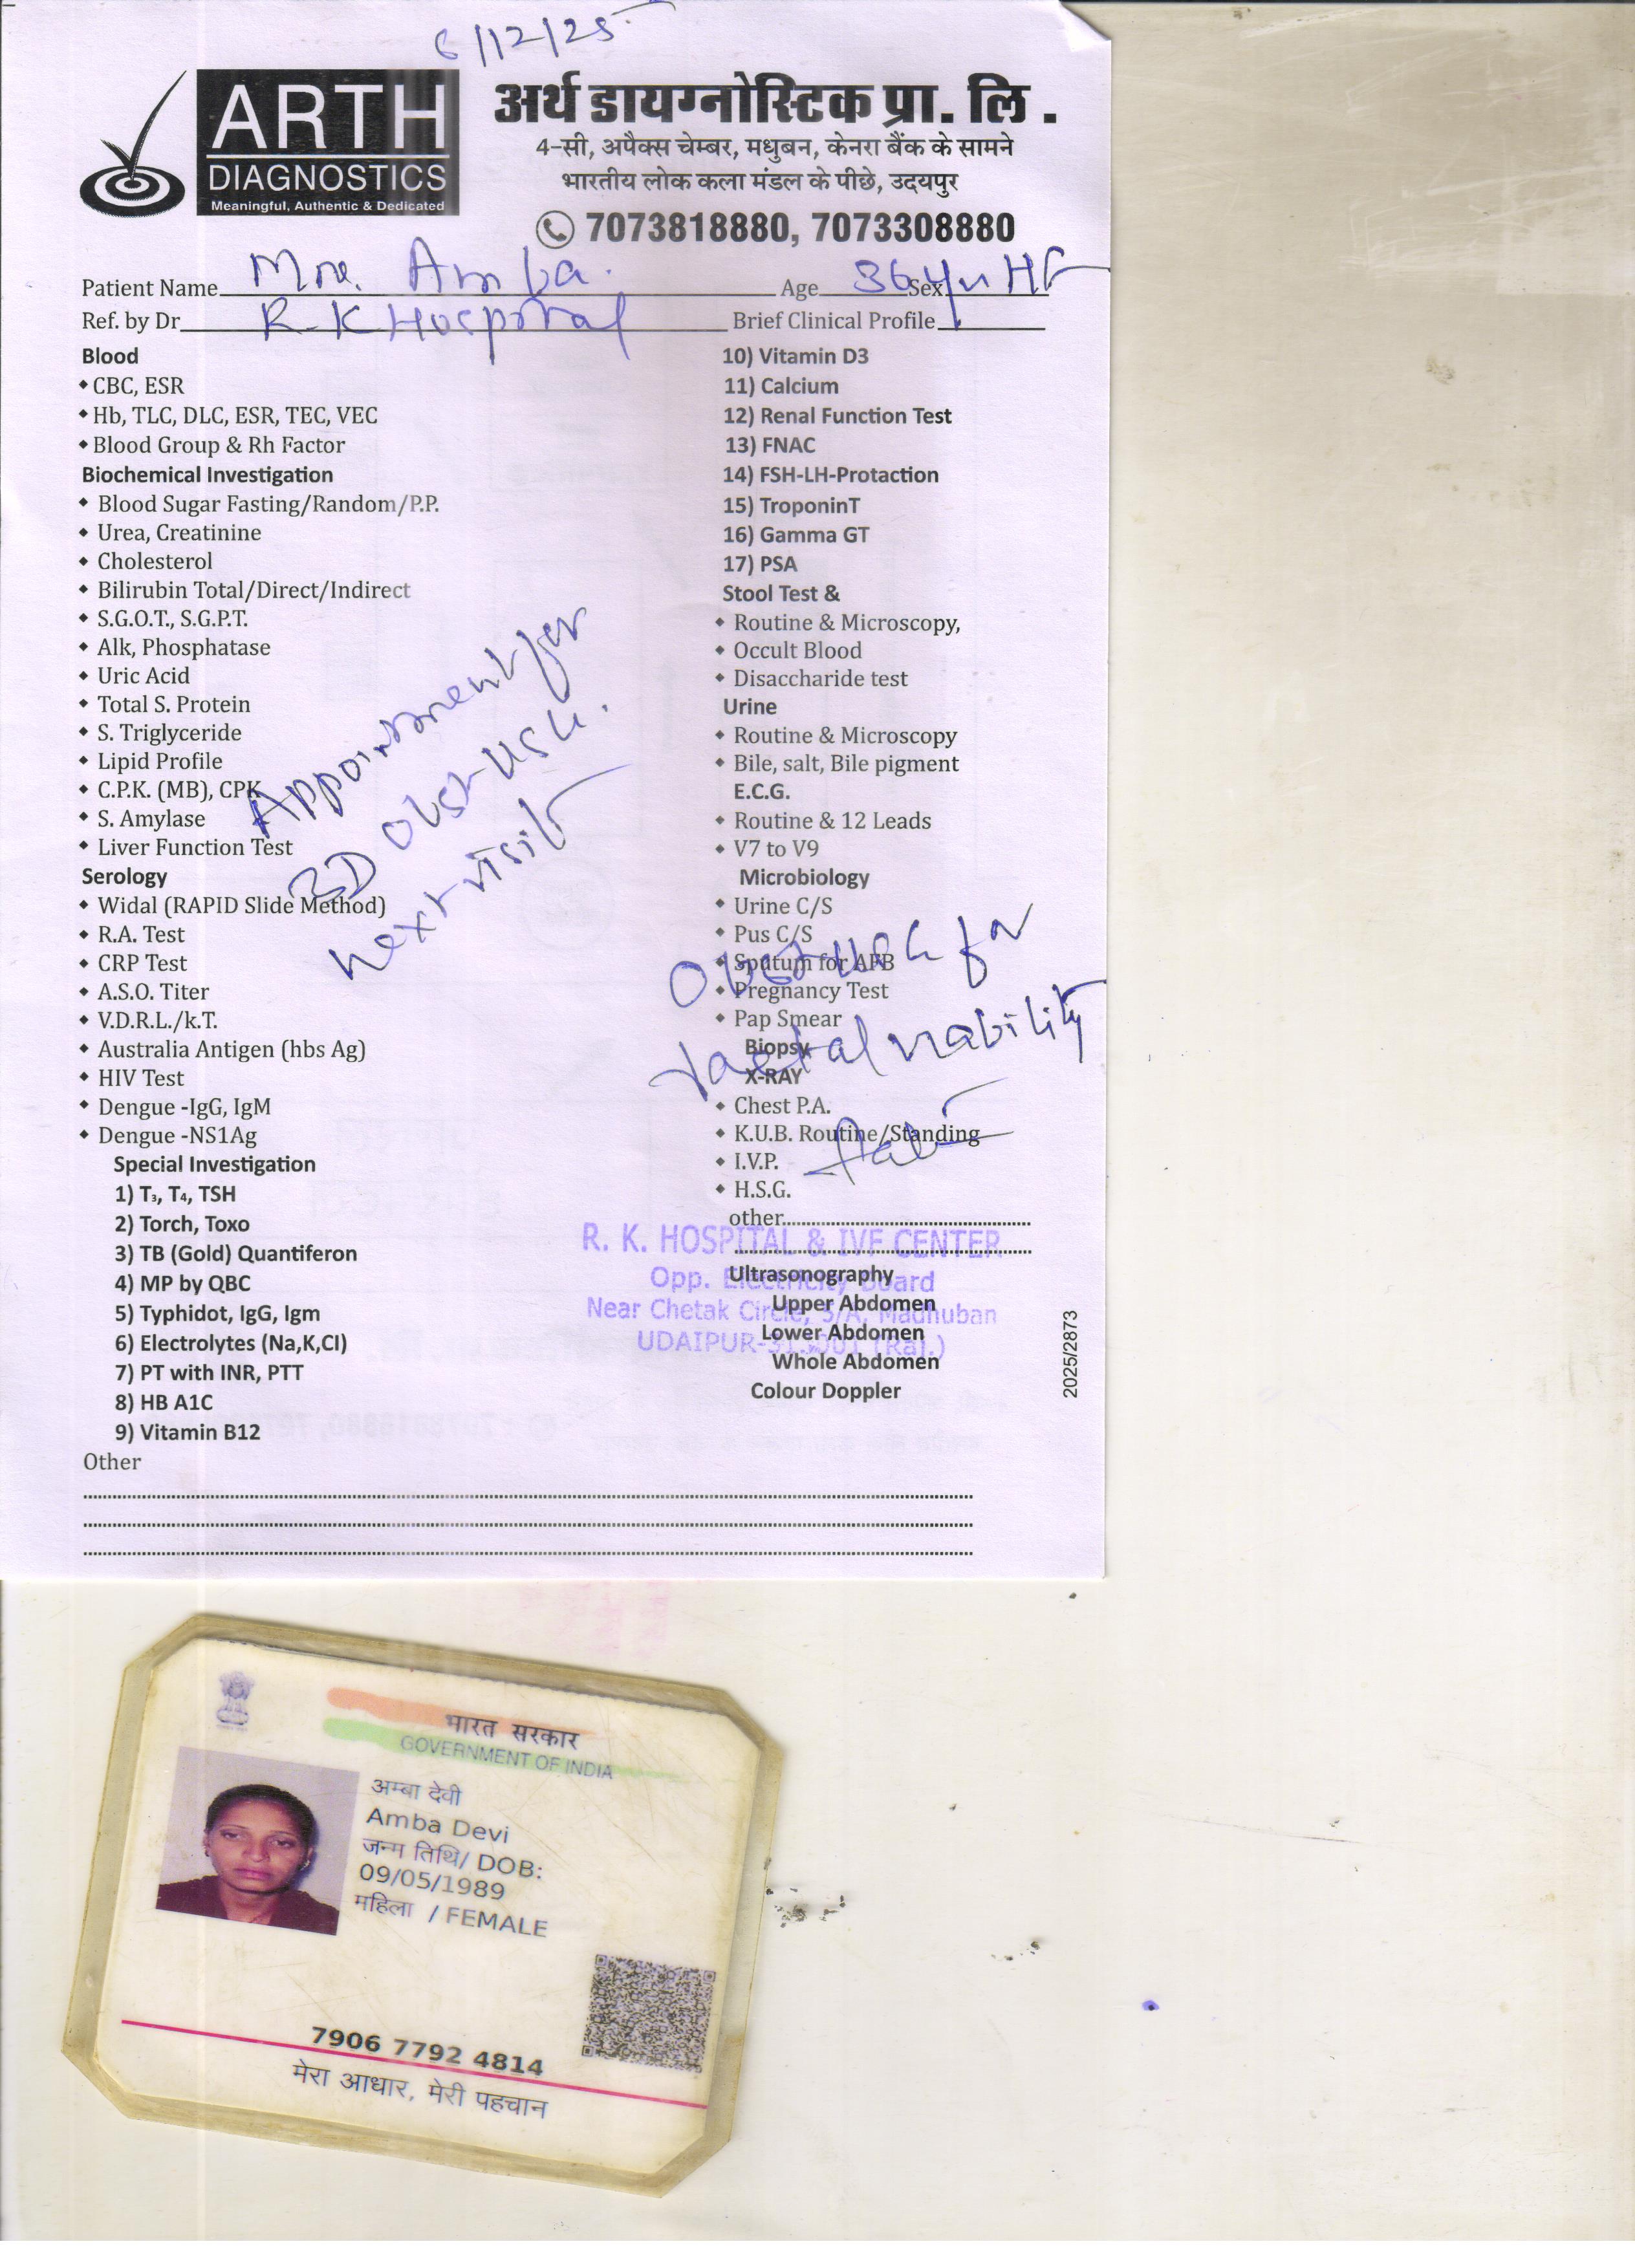 6/12/25
ARTH
DIAGNOSTICS
Meaningful, Authentic & Dedicated
अर्थ डायग्नोस्टिक प्रा. लि .
4-सी, अपैक्स चेम्बर, मधुबन, केनरा बैंक के सामने
भारतीय लोक कला मंडल के पीछे, उदयपुर
7073818880, 7073308880
Patient Name Mrs. Amba. Age 36 Sex
Ref. by Dr R-K Hospital Brief Clinical Profile
Blood
CBC, ESR
Hb, TLC, DLC, ESR, TEC, VEC
Blood Group & Rh Factor
Biochemical Investigation
Blood Sugar Fasting/Random/P.P.
Urea, Creatinine
Cholesterol
Bilirubin Total/Direct/Indirect
S.G.O.T., S.G.P.T.
Alk, Phosphatase
Uric Acid
Total S. Protein
S. Triglyceride
Lipid Profile
C.P.K. (MB), CPK
S. Amylase
Liver Function Test
Serology
Widal (RAPID Slide Method)
R.A. Test
CRP Test
A.S.O. Titer
V.D.R.L./k.T.
Australia Antigen (hbs Ag)
HIV Test
Dengue -IgG, IgM
Dengue -NS1Ag
Special Investigation
1) T₃, T₄, TSH
2) Torch, Toxo
3) TB (Gold) Quantiferon
4) MP by QBC
5) Typhidot, IgG, Igm
6) Electrolytes (Na,K,Cl)
7) PT with INR, PTT
8) HB A1C
9) Vitamin B12
Other
Appointment for
3D Obst USG.
next visit
10) Vitamin D3
11) Calcium
12) Renal Function Test
13) FNAC
14) FSH-LH-Protaction
15) TroponinT
16) Gamma GT
17) PSA
Stool Test &
Routine & Microscopy,
Occult Blood
Disaccharide test
Urine
Routine & Microscopy
Bile, salt, Bile pigment
E.C.G.
Routine & 12 Leads
V7 to V9
Microbiology
Urine C/S
Pus C/S
Sputum for AFB
Pregnancy Test
Pap Smear
Biopsy
X-RAY
Chest P.A.
K.U.B. Routine/Standing
I.V.P.
H.S.G.
other
Ultrasonography
Upper Abdomen
Lower Abdomen
Whole Abdomen
Colour Doppler
Obst USG for
faetal viability
R. K. HOSPITAL & IVF CENTER
Opp. Electricity Board
Near Chetak Circle, 5/A, Madhuban
UDAIPUR-313001 (Raj.)
2025/2873
भारत सरकार
GOVERNMENT OF INDIA
अम्बा देवी
Amba Devi
जन्म तिथि/ DOB:
09/05/1989
महिला / FEMALE
7906 7792 4814
मेरा आधार, मेरी पहचान